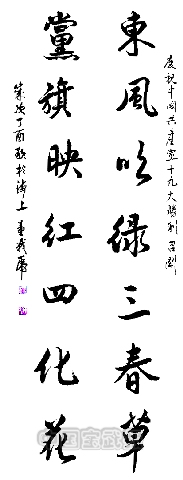 慶祝中國共產黨十九大勝利召開
東風吹綠三春草
黨旗映紅四化花
歲次丁酉敬於海上